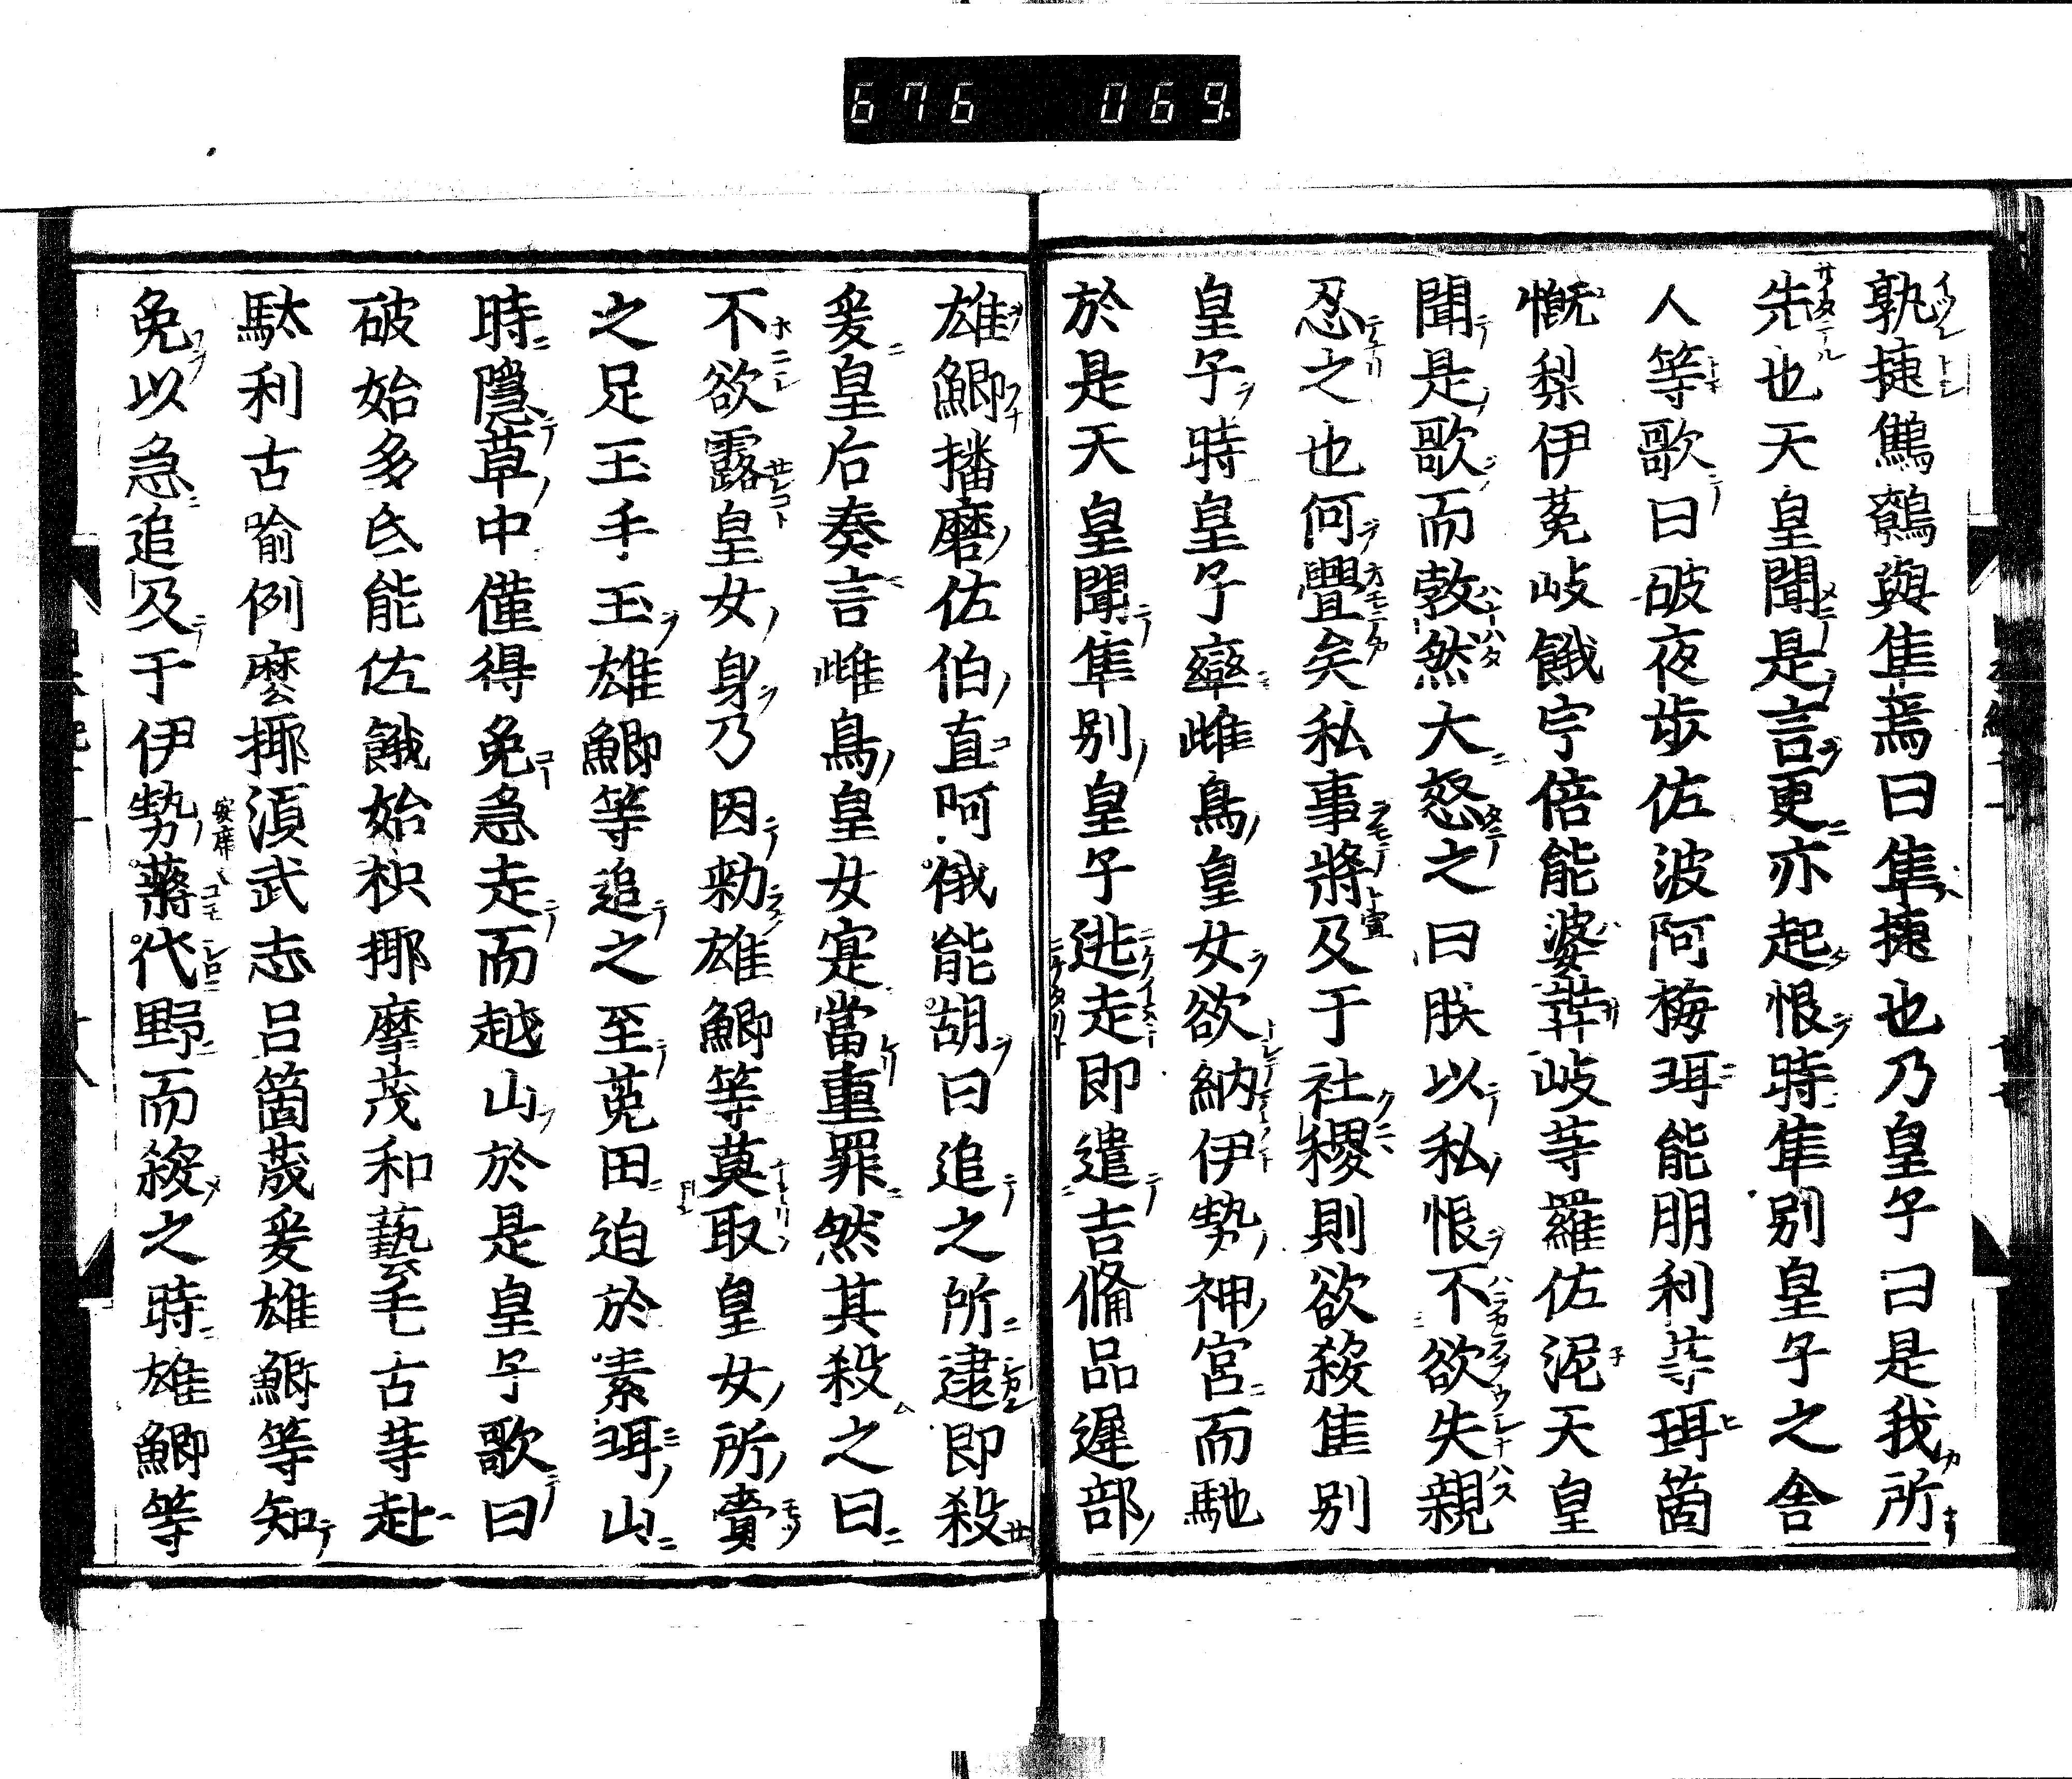 676 069
孰捷鷦鷯與隼焉曰隼捷也乃皇子曰是我所
先也天皇聞是言更亦起恨時隼別皇子之舎
人等歌曰破夜歩佐波阿梅珥能朋利等珥箇
慨梨伊菟岐餓宇倍能婆弉岐等羅佐泥天皇
聞是歌而敦然大怒之曰朕以私恨不欲失親
忍之也何舋矣私事將及于社稷則欲殺隼別
皇子時皇子率雌鳥皇女欲納伊勢神宮而馳
於是天皇聞隼別皇子逃走即遣吉備品遲部
雄鯽播磨佐伯直阿俄能胡曰追之所逮即殺
爰皇后奏言雌鳥皇女寔當重罪然其殺之日
不欲露皇女身乃因勅雄鯽等莫取皇女所賷
之足玉手玉雄鯽等追之至菟田迫於素珥山
時隱草中僅得免急走而越山於是皇子歌曰
破始多氐能佐餓始枳揶摩茂和藝毛古等赴
駄利古喩例麼揶湏武志呂箇茂爰雄鯽等知
免以急追及于伊勢蒋代野而殺之時雄鯽等